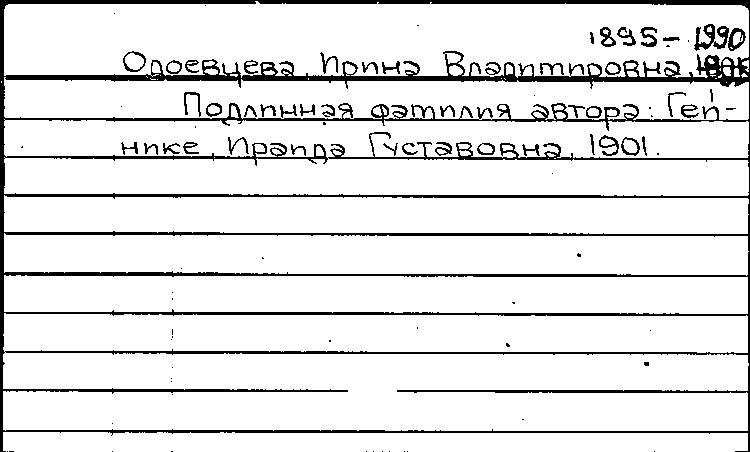 1895 - 1990
Одоевцева, Ирина Владимировна,
Подлинная фамилия автора: Гей-
нике, Ираида Густавовна, 1901.